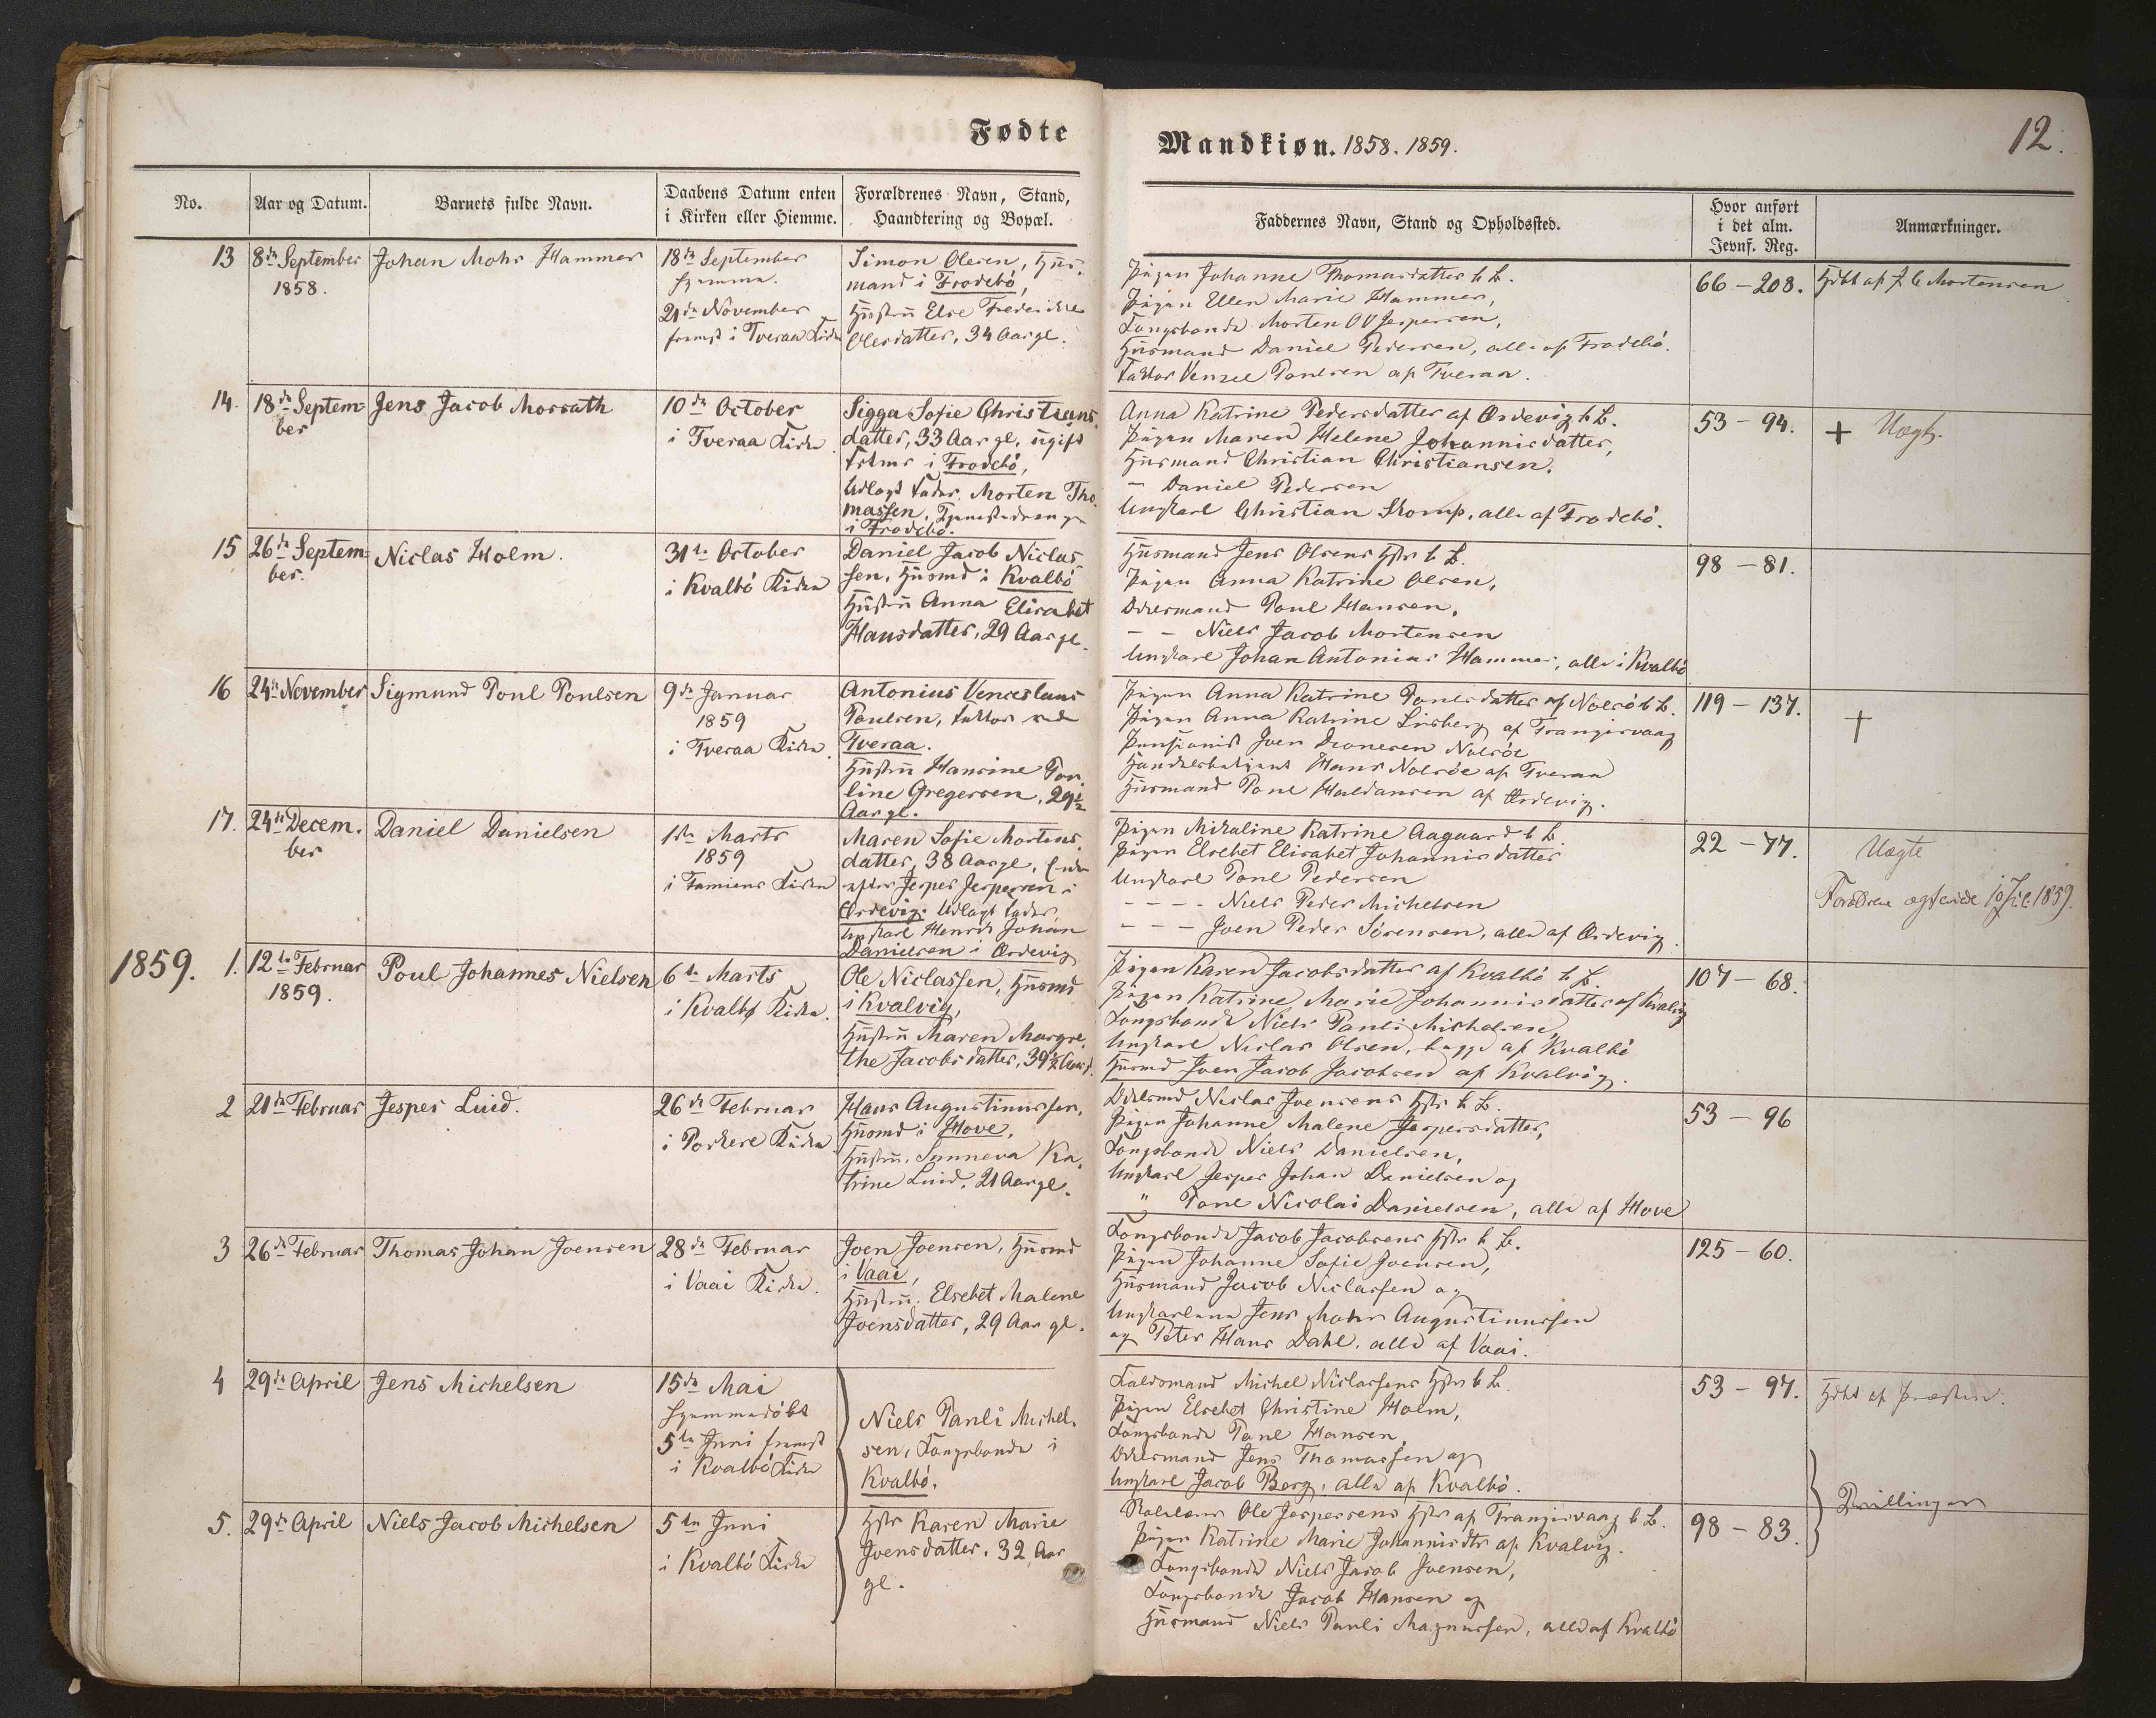 Fødte
No.
Aar og Datum.
Barnets fulde Navn.
Daabens Datum enten
i Kirken eller Hiemme.
Forældrenes Navn, Stand,
Haandtering og Bopæl.
13
8de September
1858.
Johan Mohr Hammer
18de September
hjemme.
21de November
fremst i Tveraa Kirke
Simon Olesen, Huus-
mand i Frodebö,
Hustru Else Frederikke
Olesdatter, 34 Aar gl.
14.
18de Septem-
ber
Jens Jacob Morrath
10de October
i Tveraa Kirke
Sigga Sofie Christians-
datter, 33 Aar gl. ugift
i Frodebö,
Udlagt Fader. Morten Tho-
massen, Tjenestedreng
i Frodebö.
15
26de Septem-
ber.
Niclas Holm.
31te October
i Kvalbö Kirke
Daniel Jacob Niclas-
sen, Husmd i Kvalbö
Hustru Anna Elisabet
Hansdatter, 29 Aar gl.
16
24de November
Sigmund Poul Poulsen
9de Januar
1859
i Tveraa Kirke
Antonius Venceslaus
Poulsen, Faktor ved
Tveraa.
Hustru Hansine Pou-
line Gregersen, 29½
Aar gl.
17.
24de Decem-
ber
Daniel Danielsen
1ste Marts
1859
i Famiens Kirke
Maren Sofie Mortens-
datter, 38 Aar gl, Enke
efter Jesper Jespersen i
Ordevig. Udlagt Fader,
Ungkarl Henrik Johan
Danielsen i Ordevig
1859.
1.
12te Februar
1859.
Poul Johannes Nielsen
6te Marts
i Kvalbø Kirke.
Ole Niclassen, Husmd
i Kvalvig,
Hustru Maren Margre-
the Jacobsdatter, 39½ Aar gl.
2
21de Februar
Jesper Luid.
26de Februar
i Porkere Kirke
Hans Augustinussen,
Husmd i Hove,
Hustru. Sunneva Ka-
trine Luid, 21 Aar gl.
3
26de Februar
Thomas Johan Joensen
28de Februar
i Vaai Kirke.
Joen Joensen, Husmd
i Vaai,
Hustru. Elsebet Malene
Joensdatter, 29 Aar gl.
4
29de April
Jens Michelsen
15de Mai
hjemmedöbt
5te Juni fremst
i Kvalbö Kirke
Niels Pauli Michel-
sen, Kongsbonde i
Kvalbö.
5.
29de April
Niels Jacob Michelsen
5te Juni
i Kvalbö Kirke
Hstr Karen Marie
Joensdatter. 32 Aar
gl.
Mandkiøn. 1858. 1859.
12.
Faddernes Navn, Stand og Opholdssted.
Hvor anført
i det alm.
Jevnf. Reg.
Anmærkninger.
Pigen Johanne Thomasdatter b B.
Pigen Ellen Marie Hammer,
Kongsbonde Morten OV Jespersen,
Husmand Daniel Pedersen, alle af Frodebö.
Faktor Vensel Poulsen af Tveraa.
66 - 208.
Hdbt af J C Mortensen
Anna Katrine Pedersdatter af Ordevig b B.
Pigen Maren Helene Johannisdatter,
Husmand Christian Christiansen,
- Daniel Pedersen
Ungkarl Christian Skorup, alle af Frodebö.
53 - 94.
+ Uægt.
Husmand Jens Olsens Hstr b B.
Pigen Anna Katrine Olsen,
Odelsmand Poul Hansen,
- - Niels Jacob Mortensen
Ungkarl Johan Antonius Hammer, alle i Kvalbö
98 - 81.
Pigen Anna Katrine Poulsdatter af Nolsö b B.
Pigen Anna Katrine Lisberg af Trangisvaag
Pensionist Joen Nolsöe
Handelsbetjent Hans Nolsöe af Tveraa
Husmand Poul Haldansen af Ordevig.
119 - 137.
†
Pigen Mikaline Katrine Aagaard b B
Pigen Elsebet Elisabet Johannisdatter
Ungkarl Poul Pedersen
- - - - Niels Peder Michelsen
- - - Joen Peder Sörensen, alle af Ordevig.
22 - 77.
Uægte
Forældrene ægteviede 1859.
Pigen Karen Jacobsdatter af Kvalbö b B.
Pigen Katrine Marie Johannisdatter af Kvalvig
Kongsbonde Niels Pauli Michelsen,
Ungkarl Niclas Olsen, begge af Kvalbö
Husmd Joen Jacob Jacobsen af Kvalvig.
107 - 68.
Odelsmd Niclas Joensens Hstr b B.
Pigen Johanne Malene Jespersdatter,
Kongsbonde Niels Danielsen,
Ungkarl Jesper Johan Danielsen og
" Poul Nicolai Danielsen, alle af Hove
53 - 96
Kongsbonde Jacob Jacobsens Hstr b B.
Pigen Johanne Sofie Joensen,
Husmand Jacob Niclassen og
Ungkarlene Jens Mohr Augustinussen
og Peter Hans Dahl. alle af Vaai.
125 - 60.
Michel Niclassens Hstr b B.
Pigen Elsebet Christine Holm,
Kongsbonde Poul Hansen,
Odelsmand Jens Thomassen og
Ungkarl Jacob Berg, alle af Kvalbö.
53 - 97.
Hdbt af Præsten.
Ole Jespersens Hstr af Trangisvaag b B.
Pigen Katrine Marie Johannisdtr af Kvalvig.
Kongsbonde Niels Jacob Joensen,
Kongsbonde Jacob Hansen og
Husmand Niels Pauli Magnussen, alle af Kvalbö
98 - 83.
Tvillinger